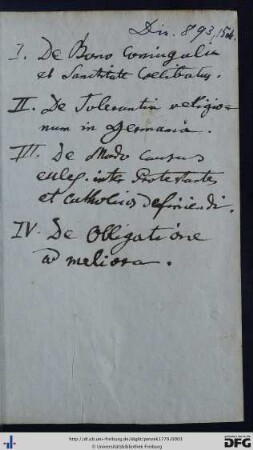 Dis. 893, 
I. De Bono Coniugalis
et Sanctitate Coelibatus.
II. De Tolerantia religio-
num in Germania.
III. De Modo Causas
eccles. inter Protestantes
et Catholicos definiendi.
IV. De Obligatione
ad meliora.
http://dl.ub.uni-freiburg.de/diglit/peneek1779/0003
© Universitätsbibliothek Freiburg
DFG